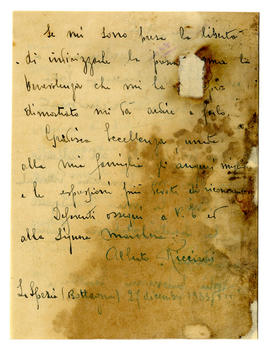 Se mi sono presa la libertà
di indirizzarle la presente ma la
benevolenza che mi ha
dimostrato mi dà ardire a farlo.
Gradisca Eccellenza unita
alla mia famiglia gli auguri
e le espressioni più di riconoscenza
Deferenti ossequi a V. E. ed
alla Signora Marchesa.
Alberto Riccini
La Spezia (Bottagna) 27 dicembre 1933